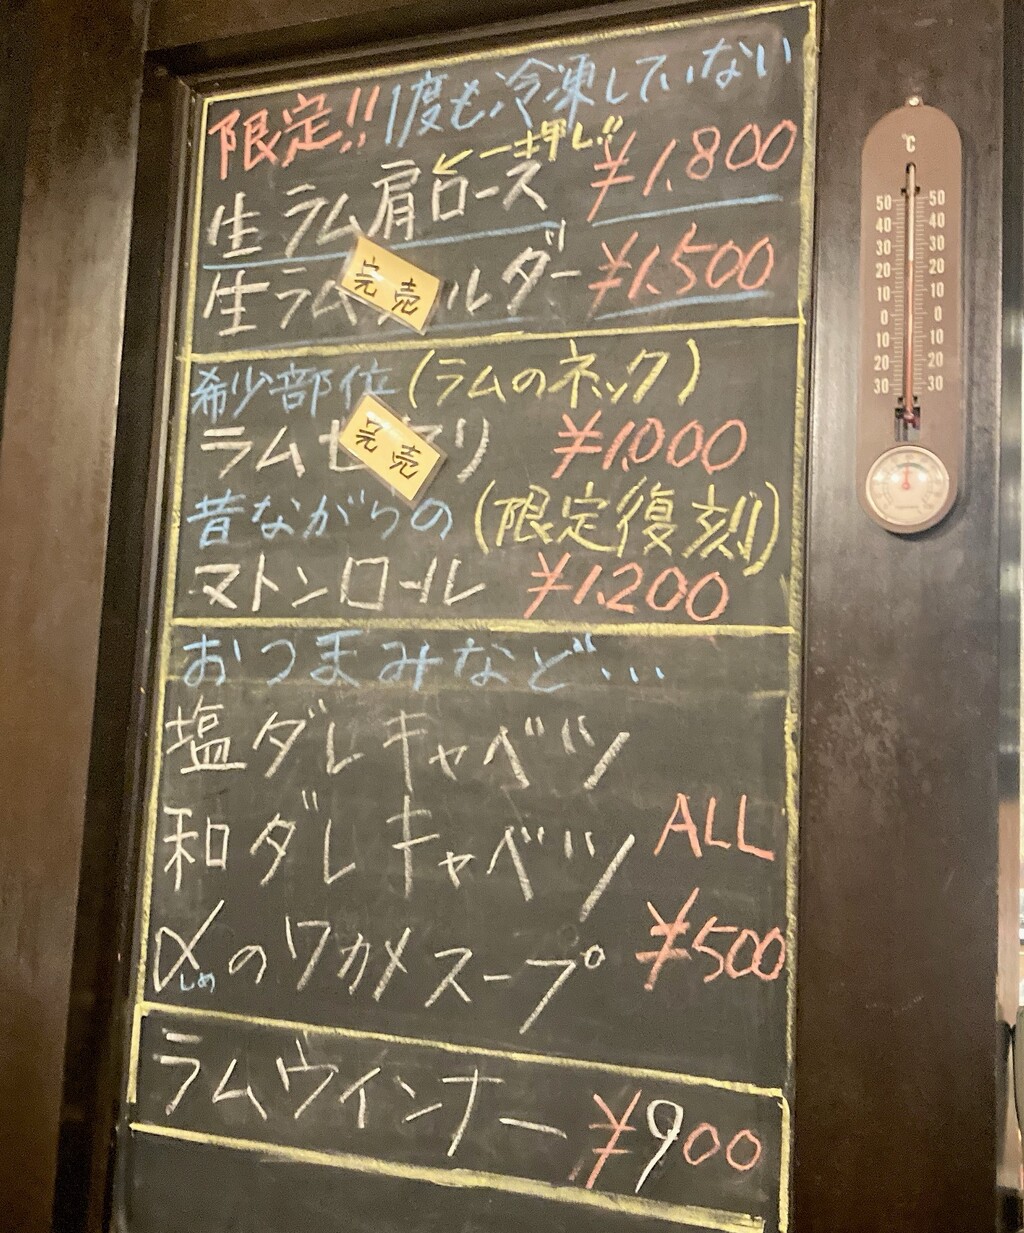 限定!! 1度も冷凍していない
←一押し!!
生ラム肩ロース ¥1,800
生ラム ルダー ¥1,500
完売
希少部位(ラムのネック)
ラムセ リ ¥1,000
完売
昔ながらの(限定復刻)
マトンロール ¥1,200
おつまみなど・・・
塩ダレキャベツ
和ダレキャベツ ALL
〆のワカメスープ ¥500
しめ
ラムウインナー ¥900
℃
50 50
40 40
30 30
20 20
10 10
0 0
10 10
20 20
30 30